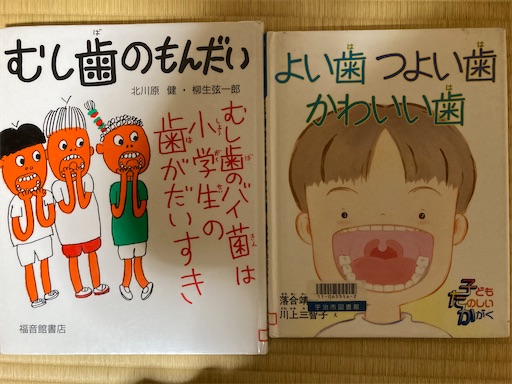 むし歯のもんだい
ば
北川原 健・柳生弦一郎
むし歯のバイ菌は
ば
きん
小学生の
しょうがくせい
歯がだいすき
は
福音館書店
よい歯 つよい歯
は
は
かわいい歯
は
落合靖
川上三智子 え
宇治市図書館
子ども
たのしい
かがく